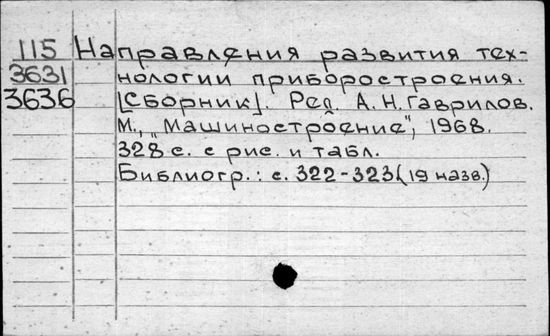 115 Направления развития тех-
3631 нологии приборостроения.
3636 [Сборник]. Ред. А. Н. Гаврилов.
М., "Машиностроение", 1968.
328 с. с рис. и табл.
Библиогр.: с. 322-323 (19 назв.)